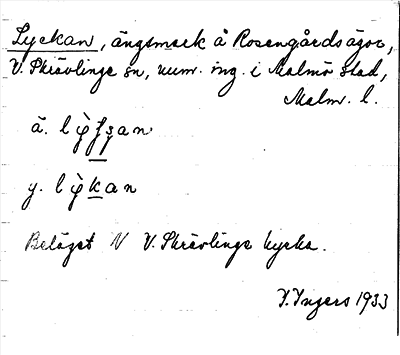 Lyckan, ängsmark å Rosengårds ägor,
V. Skrävlinge sn, num. ing. i Malmö stad,
Malm. l.
ä.
y.
Beläget N V. Skrävlinge kyrka.
I. Ingers 1933